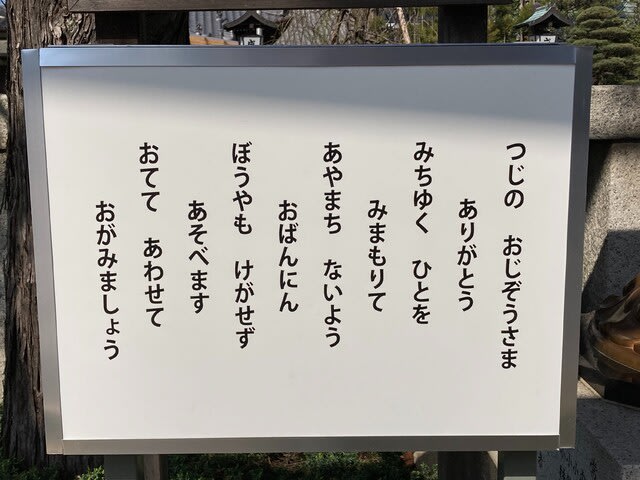 つじの　おじぞうさま
ありがとう
みちゆく　ひとを
みまもりて
あやまち　ないよう
おばんにん
ぼうやも　けがせず
あそべます
おてて　あわせて
おがみましょう